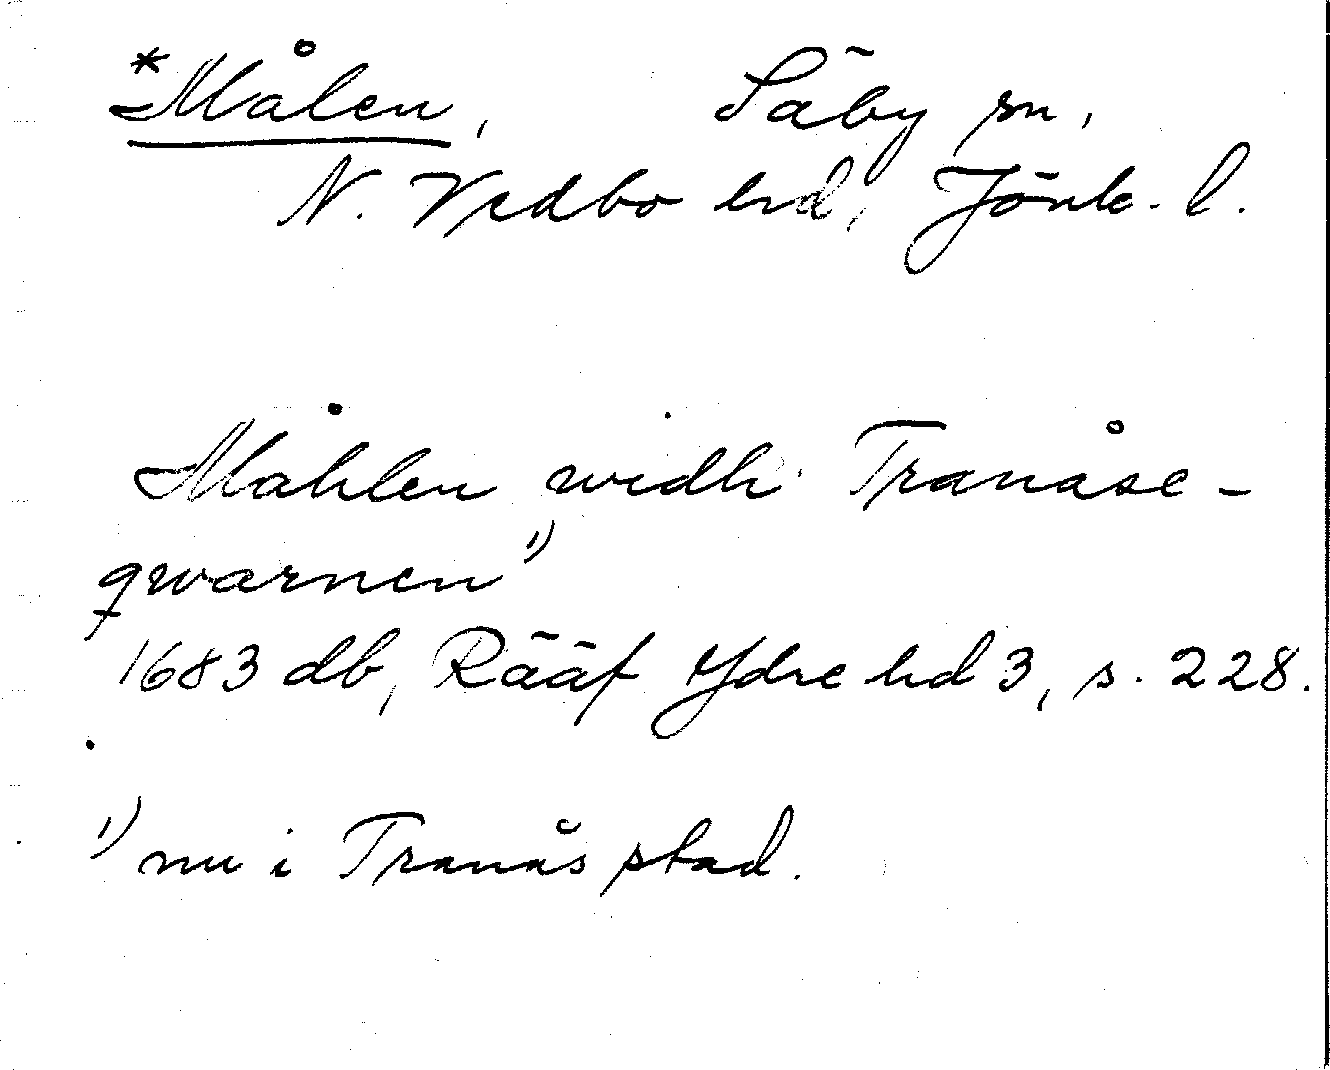 *Målen, Säby sn,
N. Vedbo hd, Jönk. l.
Måhlen widh Tranåse-
qwarnen¹⁾
1683 db, Rääf Ydre hd 3, s. 228.
¹⁾ nu i Tranås stad.